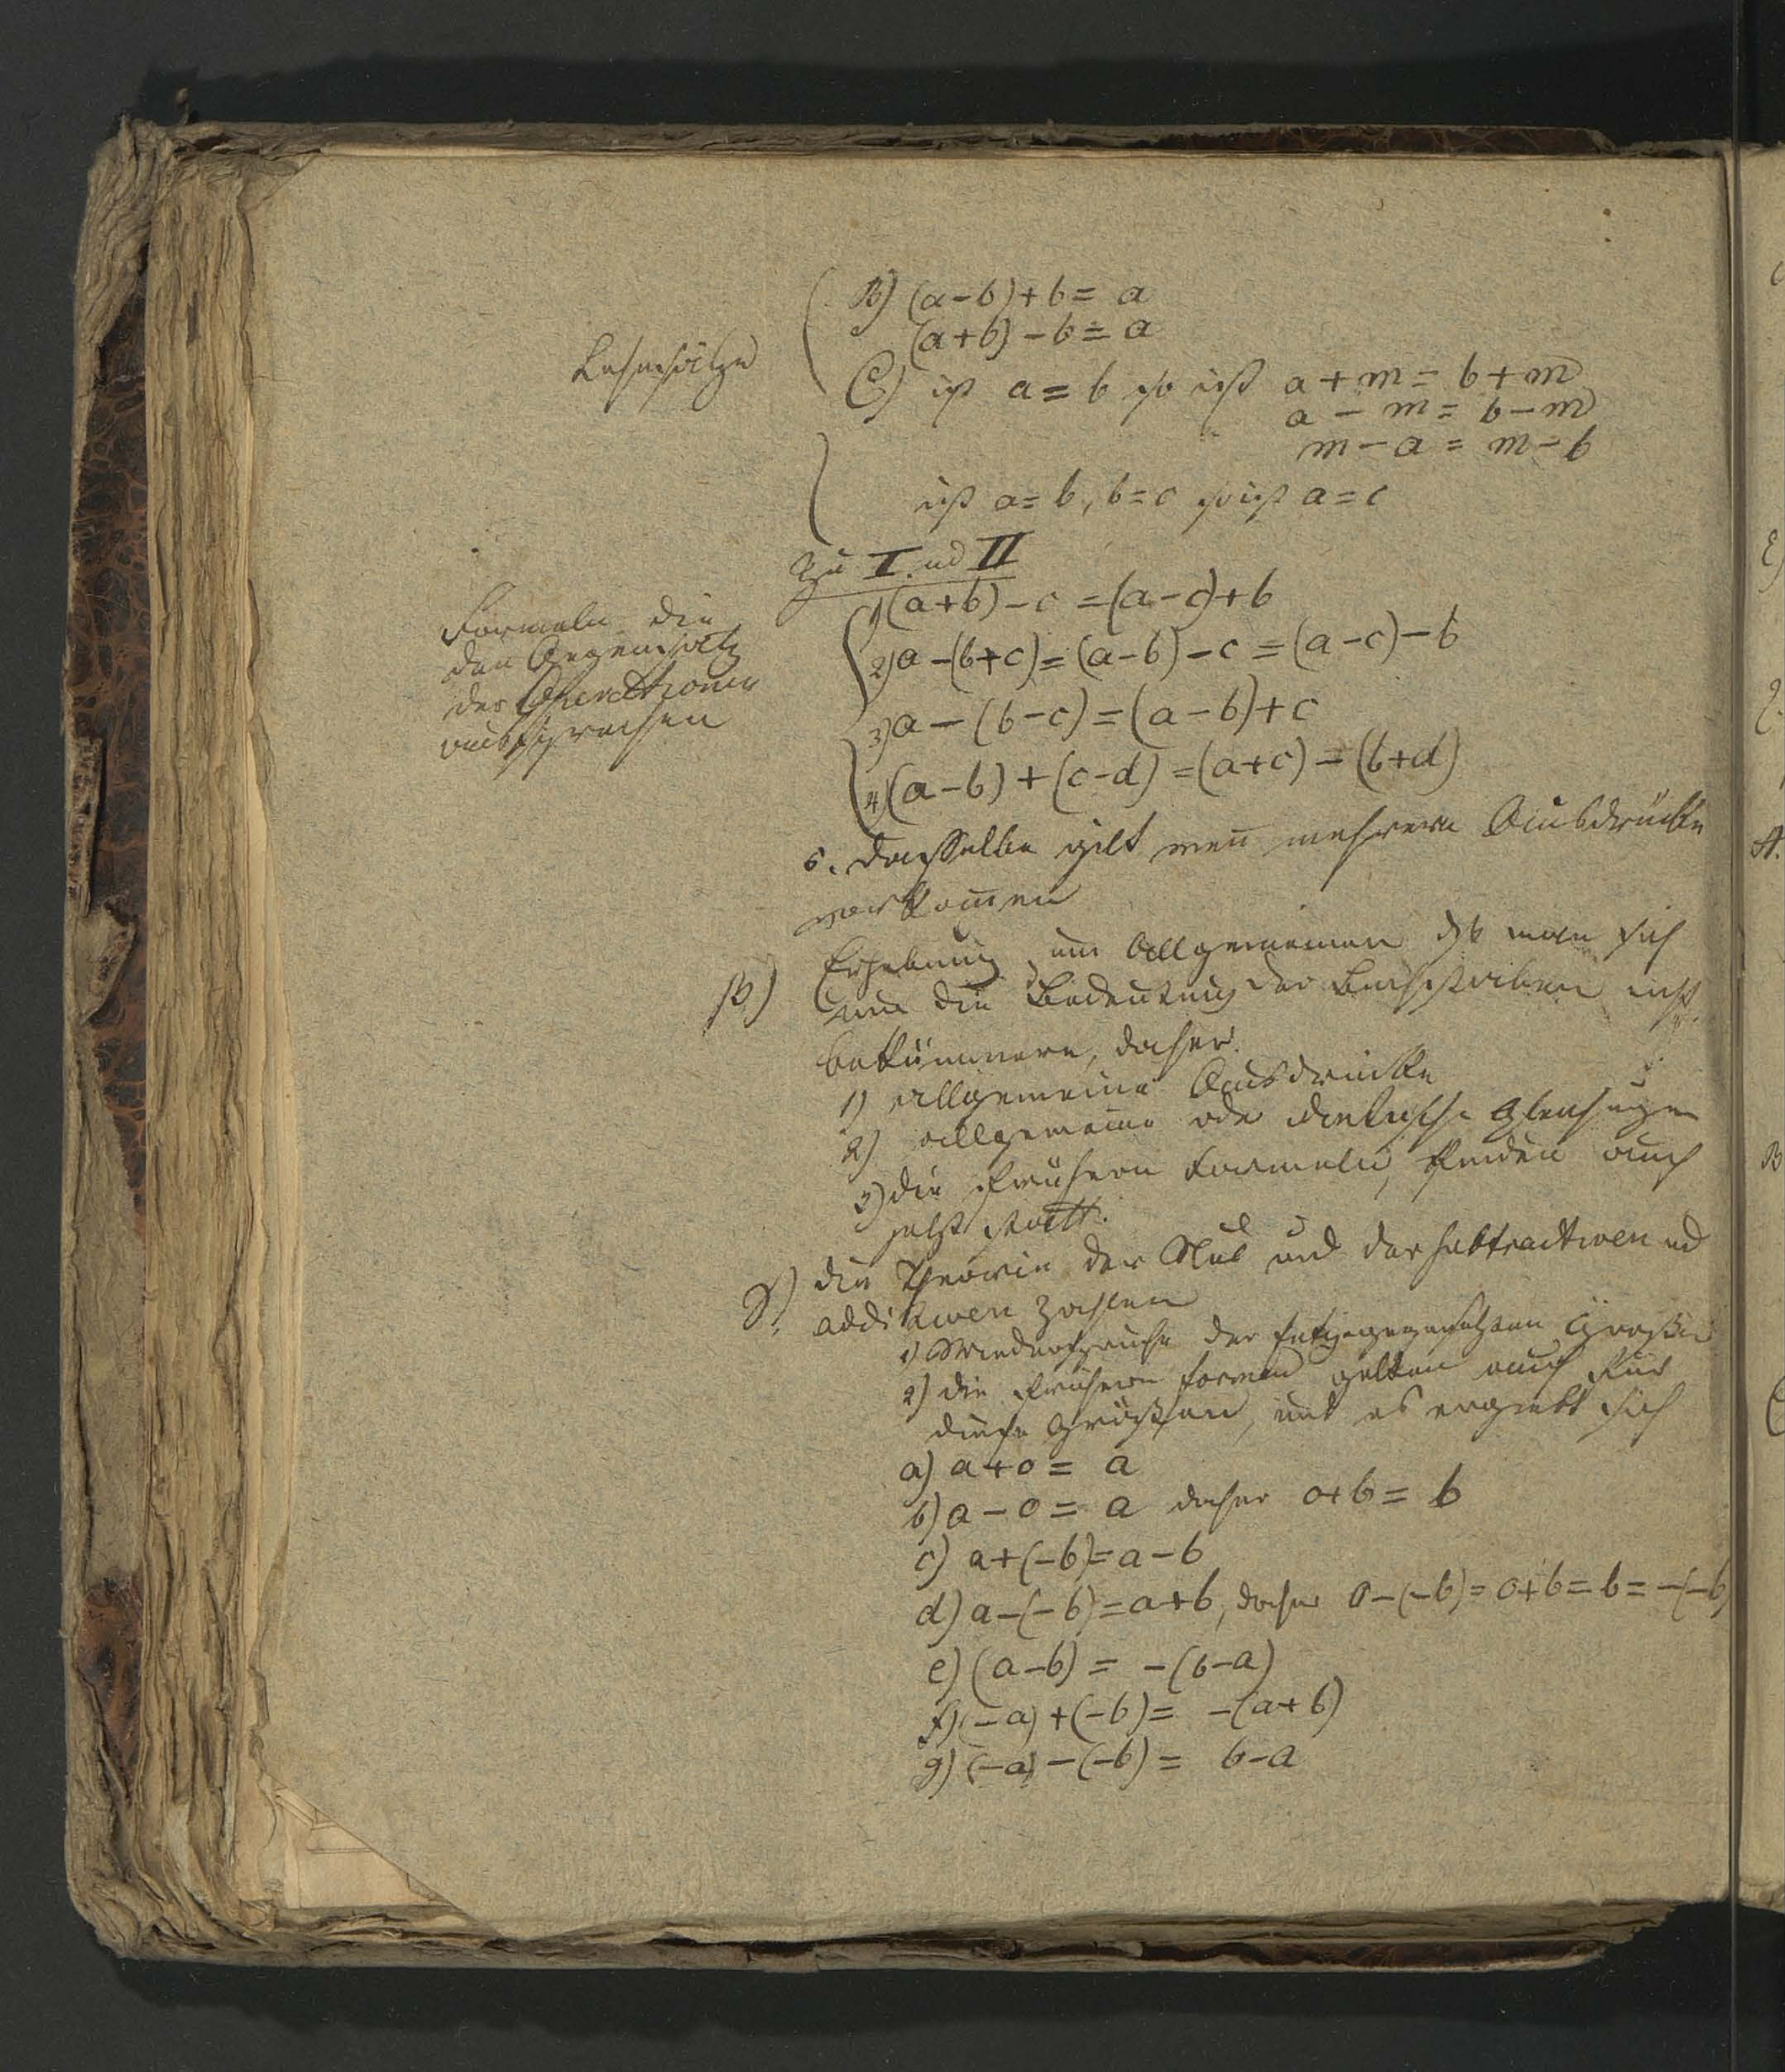 B) (a-b)+b= a
(a+b)-b=a
Lehrsätze
C) ist a=b so ist a+m= b+m
a-m= b-m
m-a= m-b
ist a=b, b=c so ist a=c
Zu I. ud II
Formeln die
den Gegensatz
der Operationen
aussprechen
1) (a+b)-c=(a-c)+b
2) a-(b+c)=(a-b)-c=(a-c)-b
3) a-(b-c)=(a-b)+c
4) (a-b)+(c-d)=(a+c)-(b+d)
5. dasselbe gilt wen̄ mehrere Ausdrücke
vorkom̄en
B) Erhebung zum Allgemeinen dß man sich
um die Bedeutung der Buchstaben nicht
bekümmere, daher.
1) allgemeine Ausdrücke
2) allgemeine oder identische Gleichungen
3) die frühern Formeln, finden auch
jetzt statt.
die Theorie der Nul und der subtractiven ud
additiven Zahlen
1) Wiedersprüche der Größen
2) die frühern formen gelten auch für
diese Größen, und es ergiebt sich
a) a+0= a
b) a-0= a daher 0+b= b
c) a+(-b)=a-b
d) a-(-b)=a+b, daher 0-(-b)=0+b=b=-(-b)
e) (a-b)= -(b-a)
f) (-a)+(-b)= -(a+b)
g) (-a)-(-b)= b-a